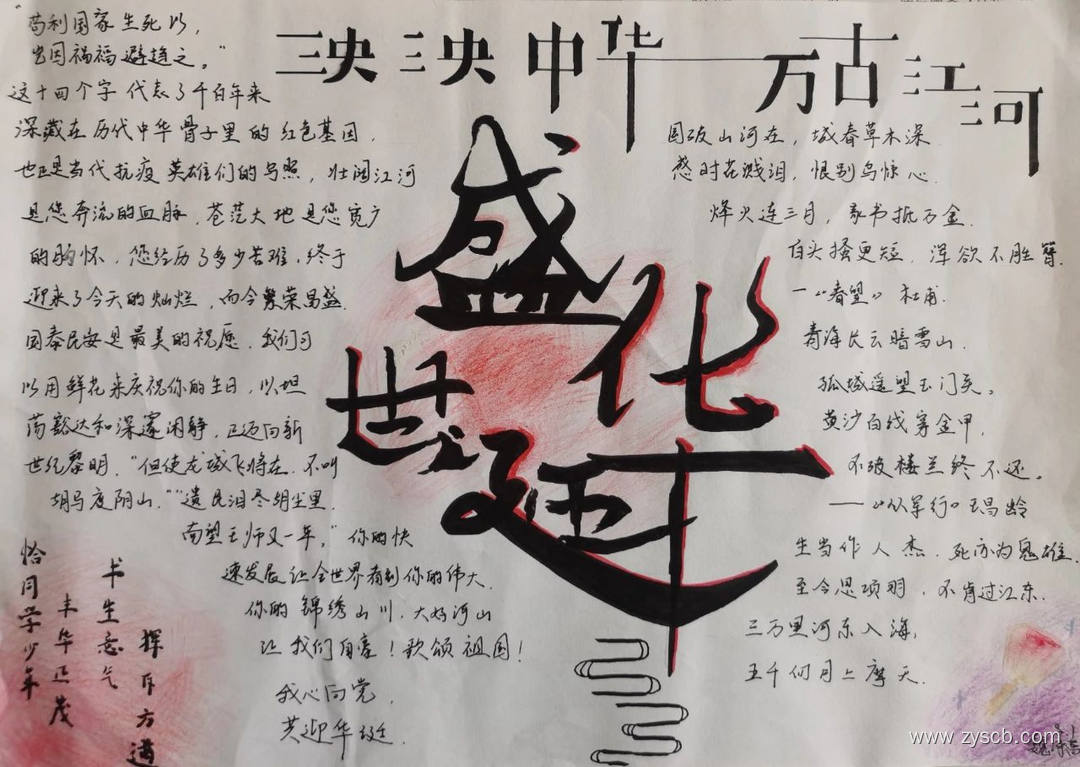 泱泱中华 万古江河
盛世华
"苟利国家生死以,
岂因祸福避趋之。"
这十四个字 代表了千百年来
深藏在历代中华骨子里的红色基因,
也正是当代抗疫英雄们的写照, 壮阔江河
是您奔流的血脉, 苍茫大地是您宽广
的胸怀, 您经历了多少苦难, 终于
迎来了今天的灿烂, 而今繁荣昌盛
国泰民安是最美的祝愿, 我们可
以用鲜花来庆祝你的生日, 以坦
荡豁达和深邃闲静, 正迈向新
世纪黎明, "但使龙城飞将在, 不叫
胡马度阴山,""遗民泪尽胡尘里,
南望王师又一年," 你的快
速发展让全世界看到你的伟大,
你的锦绣山川, 大好河山
让我们自豪! 歌颂祖国!
我心向党,
共迎华诞.
国破山河在, 城春草木深
感时花溅泪, 恨别鸟惊心.
烽火连三月, 家书抵万金.
白头搔更短, 浑欲不胜簪.
—《春望》杜甫
青海长云暗雪山,
孤城遥望玉门关。
黄沙百战穿金甲,
不破楼兰终不还。
——《从军行》王昌龄
生当作人杰, 死亦为鬼雄.
至今思项羽, 不肯过江东.
三万里河东入海,
五千仞岳上摩天.
恰同学少年
丰华正茂
书生意气
挥斥方遒
www.zyscb.com